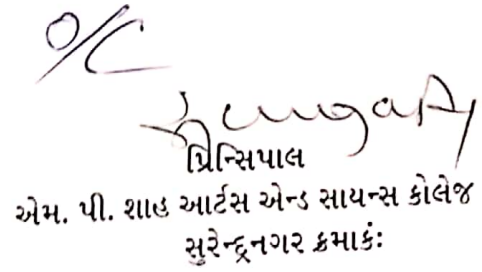 O/C
પ્રિન્સિપાલ
એમ. પી. શાહ આર્ટસ એન્ડ સાયન્સ કોલેજ
સુરેન્દ્રનગર ક્રમાકંઃ